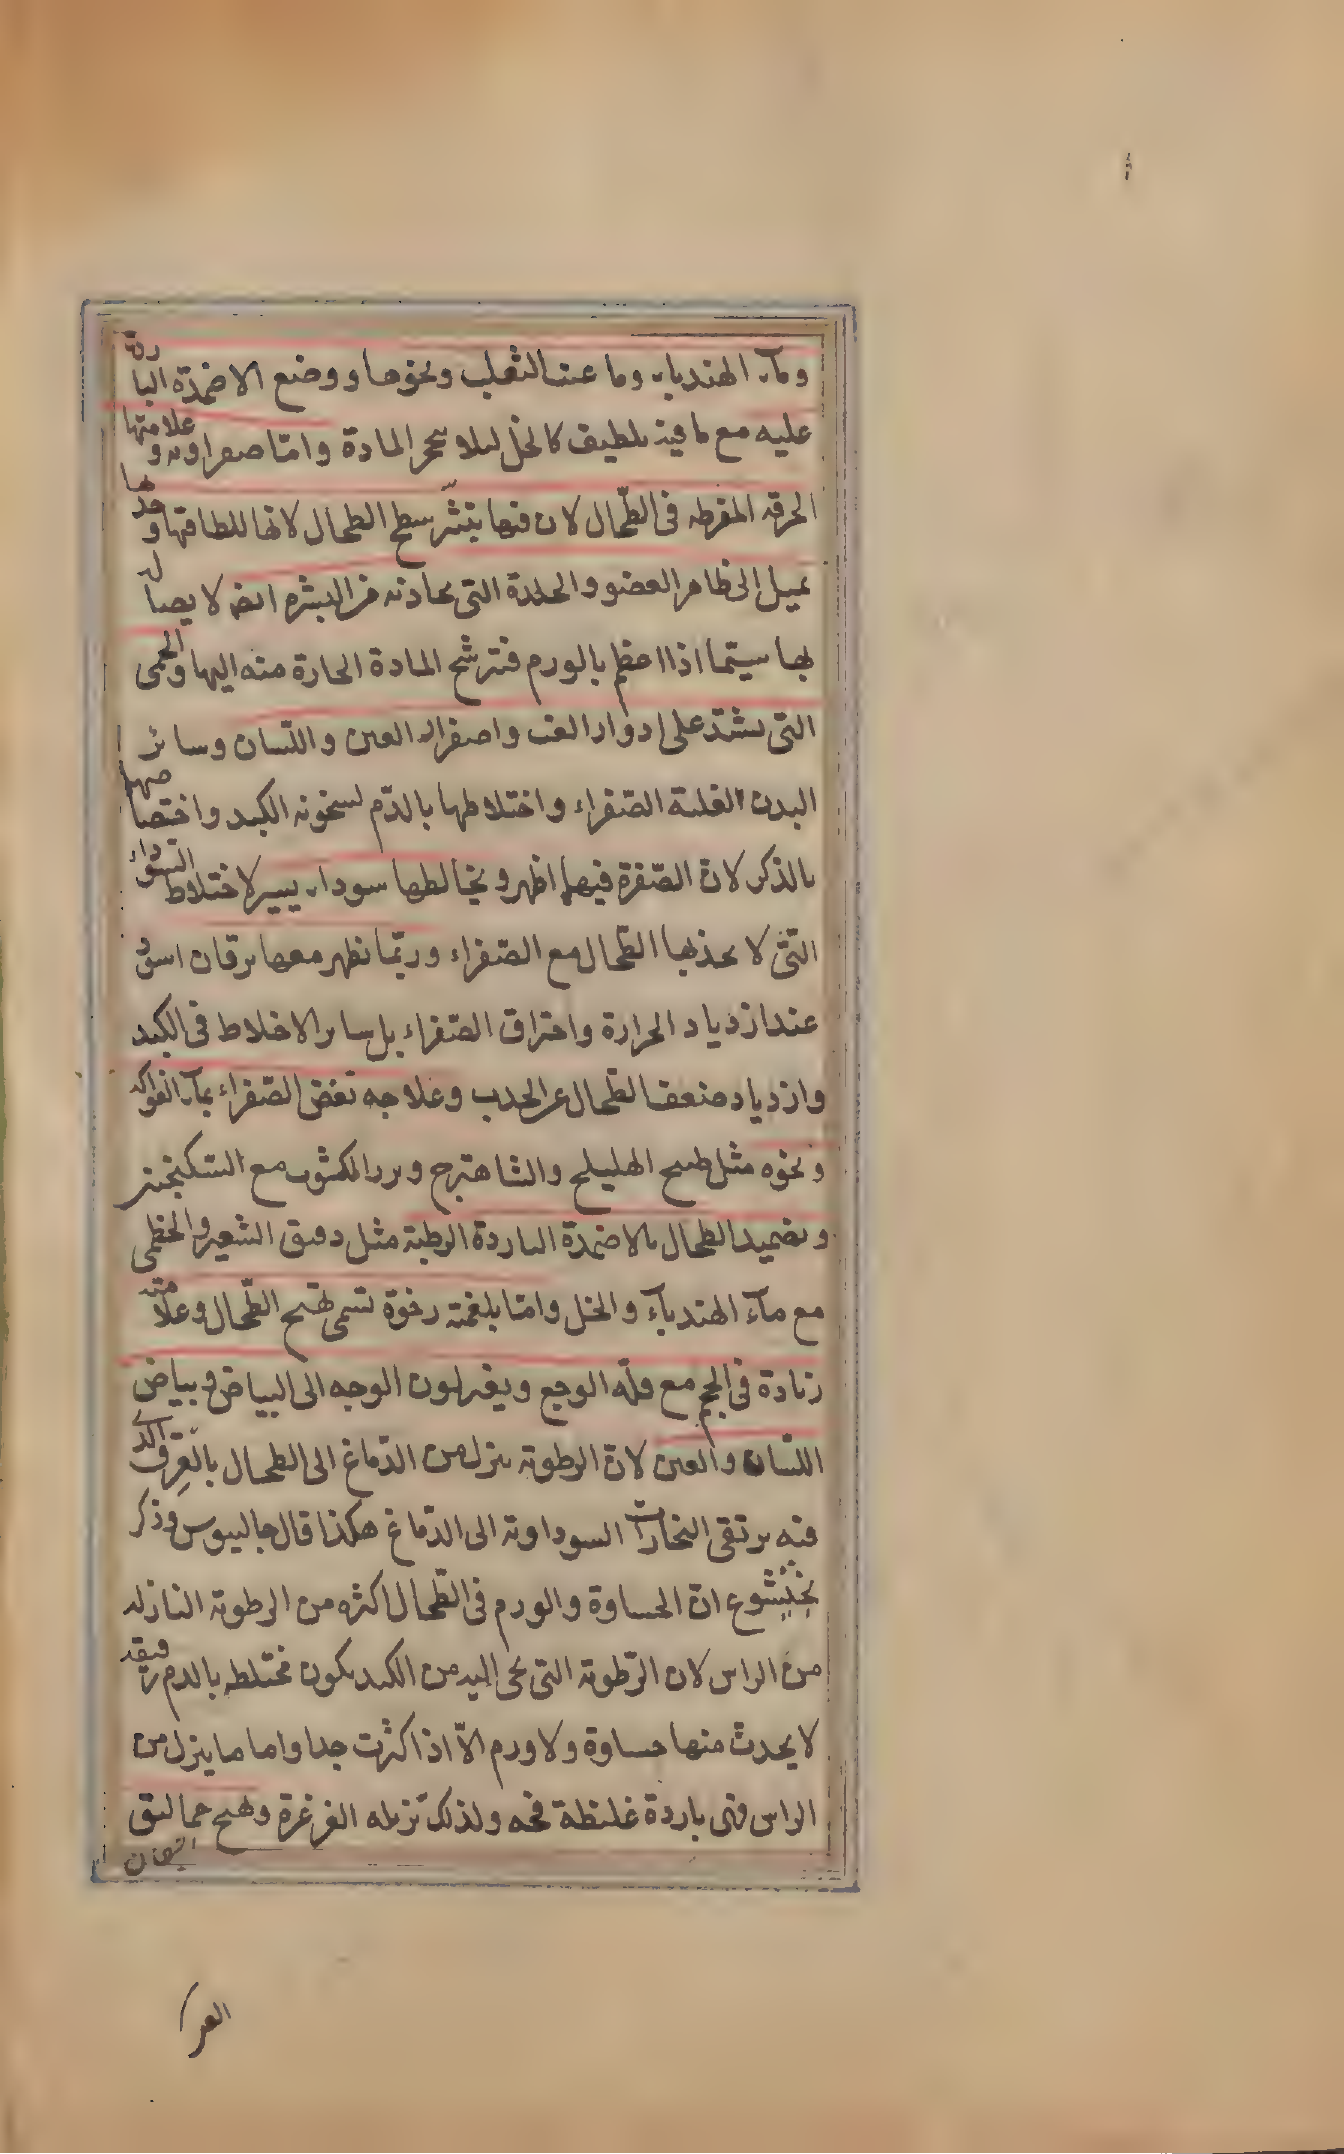 وماء الهندباء وما عنب الثعلب ونحوها ووضع الاضمدة الباردة
عليه مع ما فيه تلطيف كالخل لئلا يتحجر المادة واما صفراوية وعلامتها
الحرقة المفرطة فى الطّحال لان فيها يتبثّر سطح الطحال لانها للطافتها وحدتها
يميل الى ظاهر العضو والجلدة التى يحاذيه من البشرة ايض لاتصاله
بها سيّما اذا اعظم بالورم فترشح المادة الحارة منه اليها والحمى
التى تشتدّ على ادوار الغب واصفرار العين واللسان وسائر
البدن لغلبة الصّفراء واختلاطها بالدّم لسخونة الكبد واختصاصهما
بالذكر لان الصّفرة فيهما اظهر ويخالطها سوداء يسير لاختلاط السّوداء
التى لا يجذبها الطّحال مع الصّفراء وربّما تظهر معها يرقان اسود
عند ازدياد الحرارة واحتراق الصّفراء بل سائر الاخلاط فى الكبد
وازدياد ضعف الطّحال عن الجذب وعلاجه نفض الصّفراء بماء الفواكه
ونحوه مثل طبيخ الهليلج والشاهترج وبزر الكشوث مع السّكنجبين
وتضميد الطحال بالاضمدة الباردة الرطبة مثل دقيق الشعير والخطمى
مع ماء الهندباء والخل وامّا بلغمية رخوة تسمى تهيّج الطّحال وعلامته
زيادة فى الحجم مع قلّة الوجع ويغير لون الوجه الى البياض وبياض
اللسان والعين لانّ الرطوبة ينزل من الدّماغ الى الطحال بالعِرق الذى
فيه يرتقى البخارات السوداوية الى الدّماغ هكذا قال جالينوس وذكر
بختيشوع انّ الجساوة والورم فى الطّحال اكثره من الرطوبة النازلة
من الراس لان الرّطوبة التى يجئ اليه من الكبد يكون مختلطة بالدم رقيقة
لا يحدث منها جساوة ولا ورم الاّ اذا كثرت جدا واما ما ينزل من
الراس فهى باردة غليظة فجه ولذلك تزيله الغرغرة وتهيج حماليق
العين